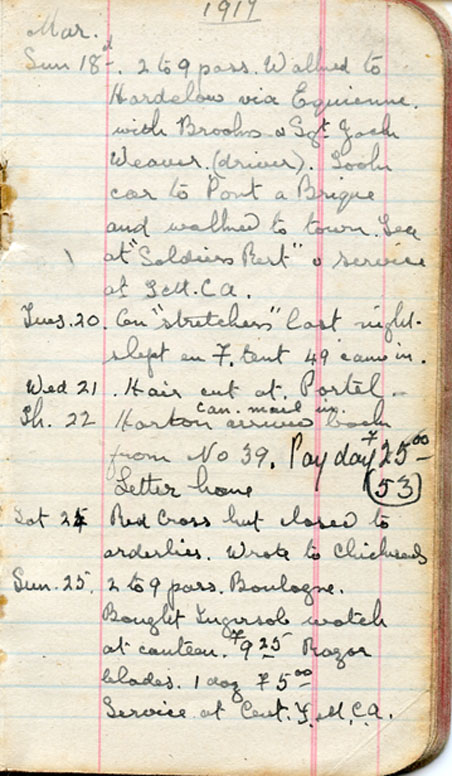 1917
Mar.
Sun 18d. 2 to 9 pass. Walked to
Hardelow via Equienne.
with Brooks & Sgt Jack
Weaver (driver). Took
car to Pont a Brique
and walked to town. Tea
at "Soldiers Rest" & service
at Y.M.C.A.
Tues. 20. On "stretchers" last night.
slept in F. tent 49 came in.
Wed 21. Hair cut at. Portel.
can. mail in.
Th. 22 Horton arrives back
from No 39. Pay day F 25 00
Letter home (53)
Sat 24 Red Cross hut closed to
orderlies. Wrote to
Sun. 25. 2 to 9 pass. Boulogne.
Bought Ingersol watch
at canteen. F 9 25 Razor
blades. 1 doz F 5 00
Service at Cent. Y.M.C.A.